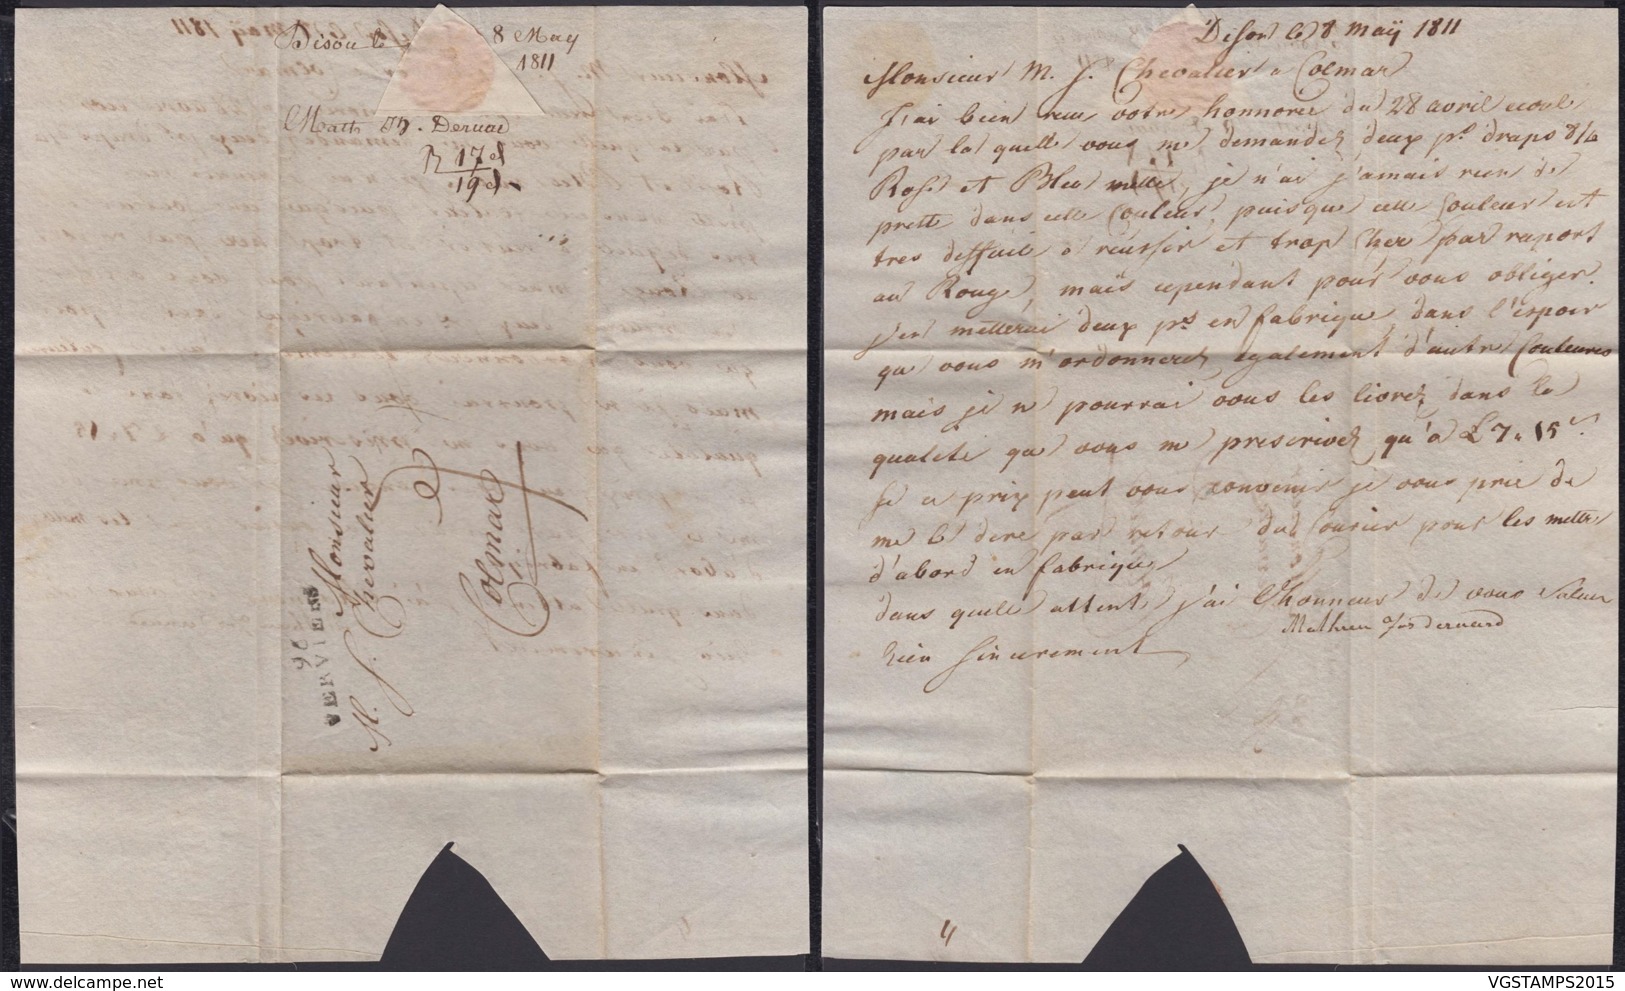 Dison le 8 May
1811
Math Jh. Deruad
R 17 d
19 d
96
VERVIERS
Monsieur
M. J. Chevalier
Colmar
Dison le 8 maÿ 1811
Monsieur M. J. Chevalier a Colmar
J'ai bien recu votre honnorée du 28 avril ecoul
par la quelle vous me demandez deux ps. draps 8/4
Rose et Bleu mellé, je n'ai j'amais rien de
prette dans cette Couleur, puisque cette Couleur est
tres deffisil a reussir et trop Cher par raport
au Rouge, maïs cependant pour vous obliger.
j'en metterai deux ps en fabrique dans l'espoir
que vous m'ordonnerez egalement d'autre Couleures
mais je ne pourrai vous les livrez dans la
qualité que vous me prescrivez qu'a £ 7.. 15 s.
Si ce prix peut vous convenir je vous prie de
me le dire par retour du Courier pour les mettre
d'abord en fabrique
dans quelle attente, j'ai l'honneur de vous saluer
bien sincerement
Mathieu Jos deruard
4
VGSTAMPS2015